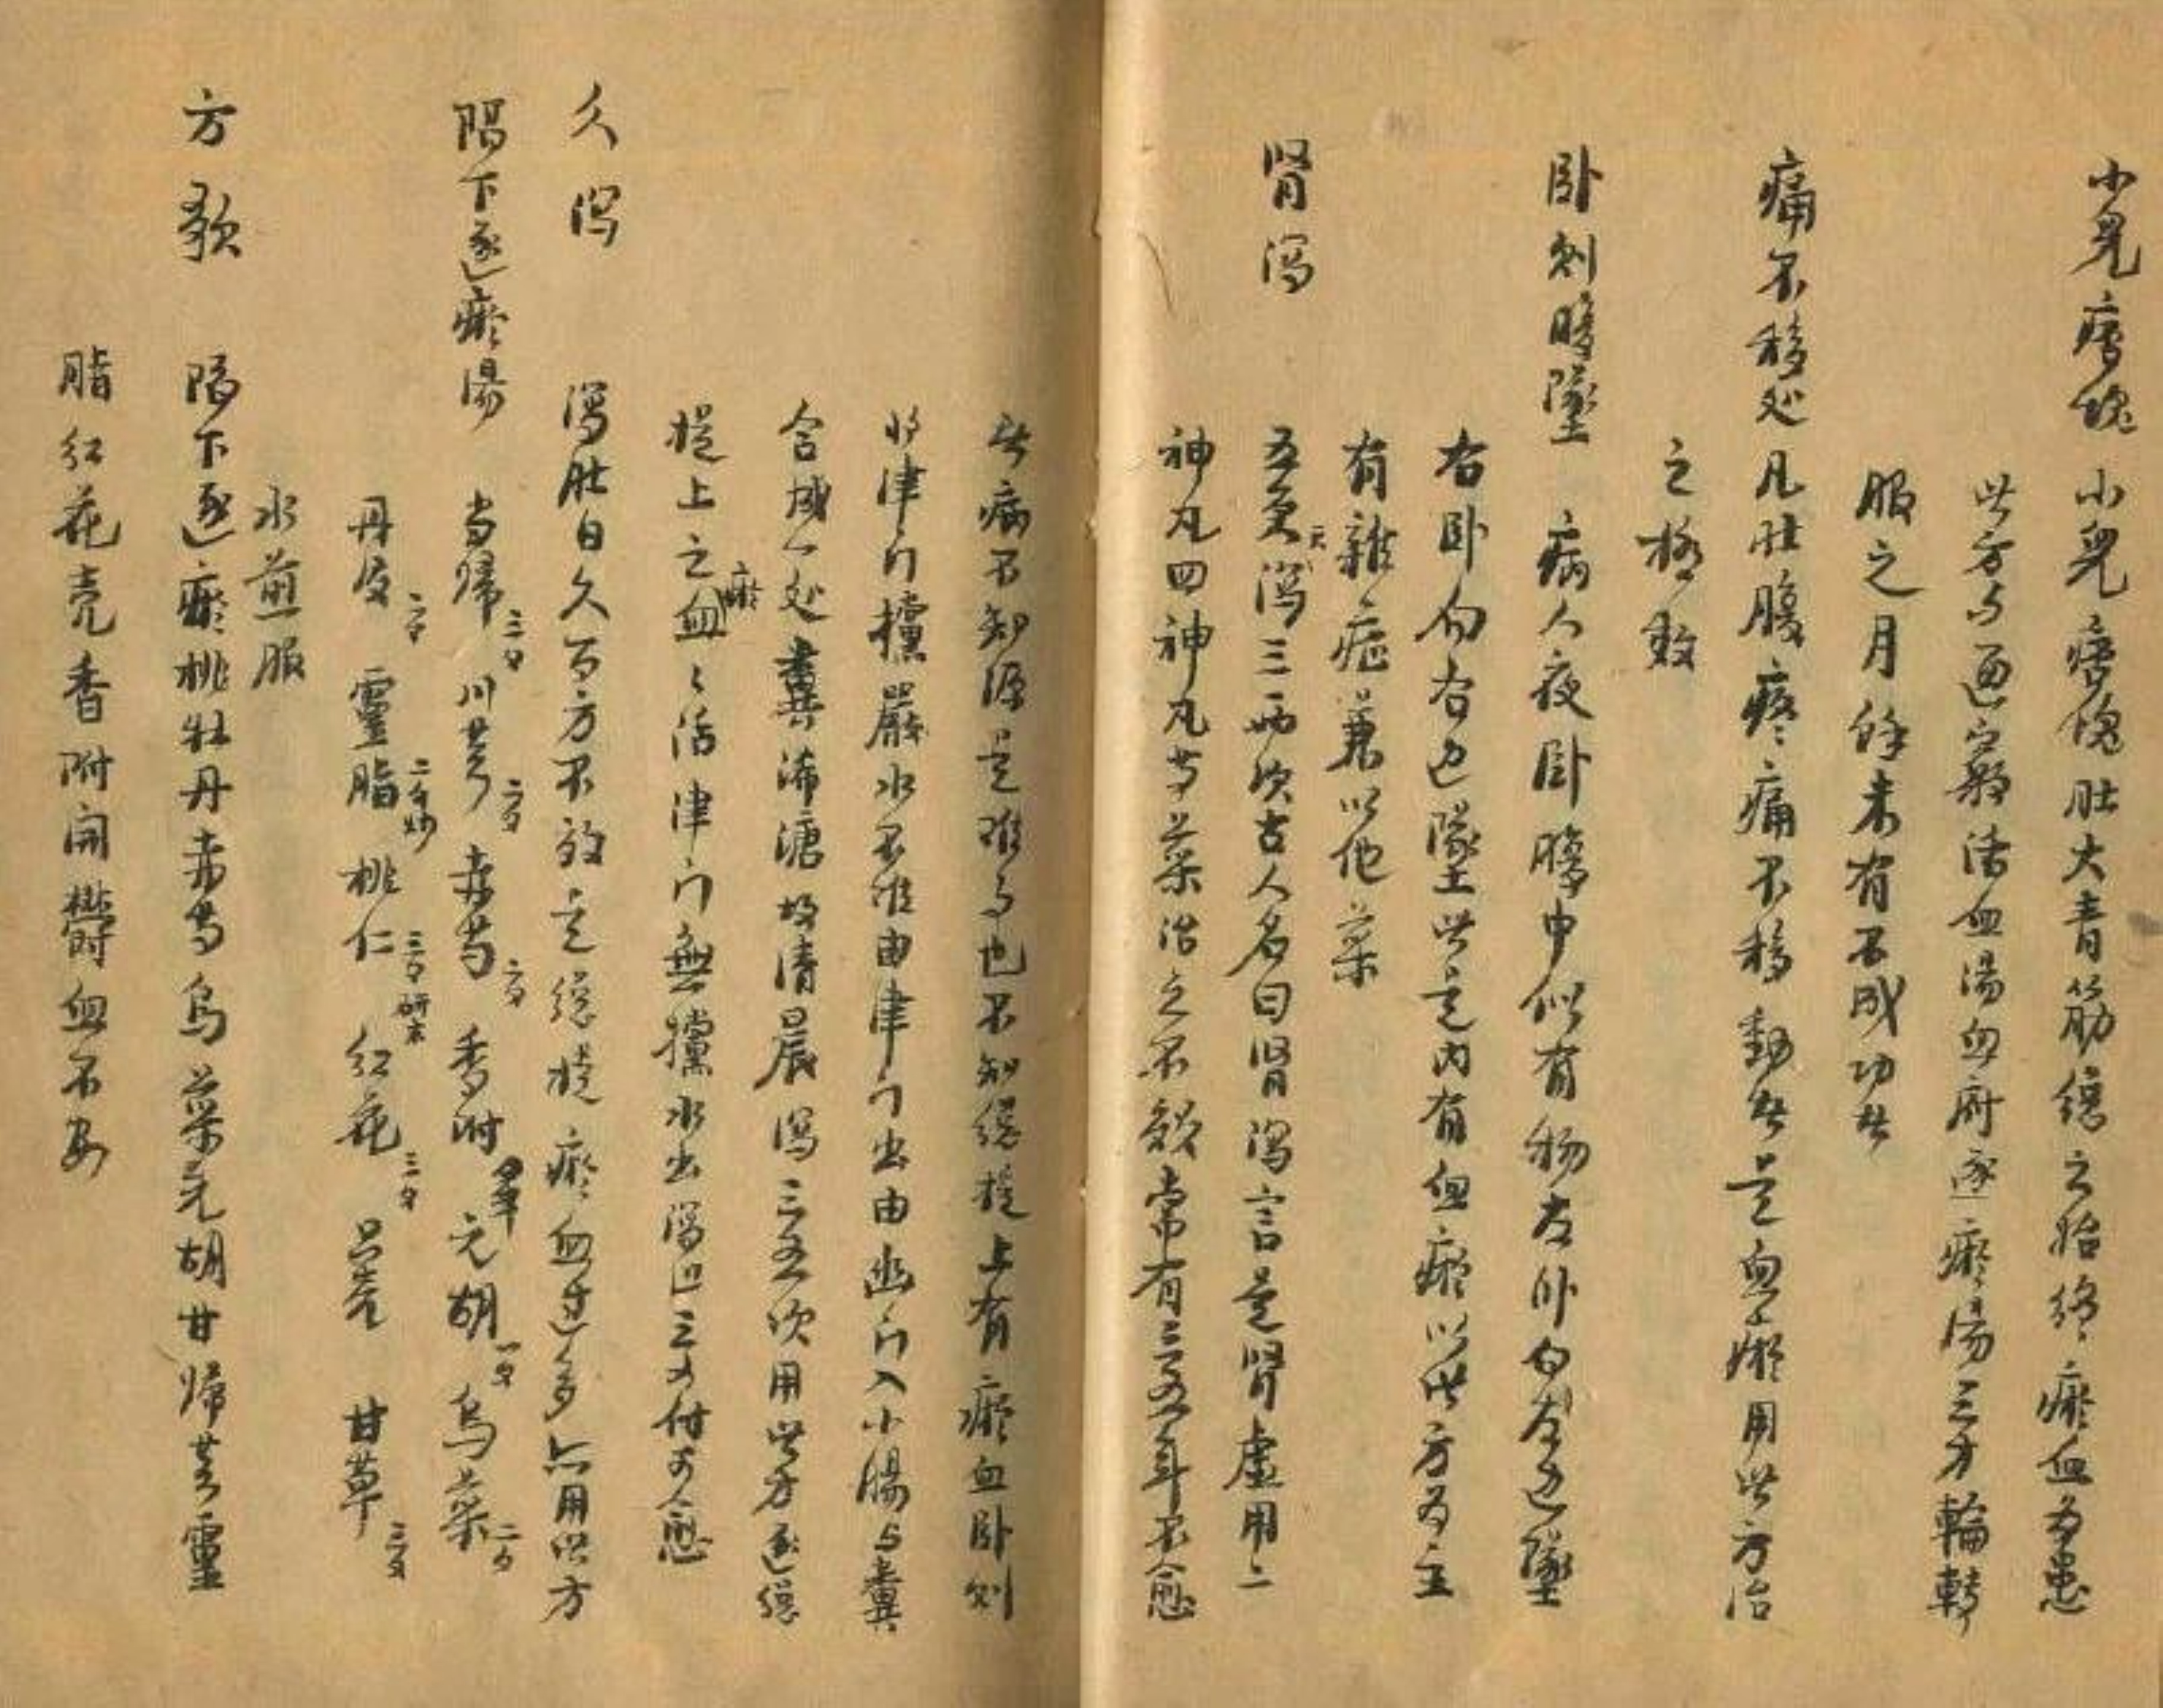 小兒痞塊 小兒痞塊肚大青筋總之始終瘀血為患
此方与通竅活血湯血府逐瘀湯三方輪轉
服之月餘未有不成功者
痛不移处 凡肚腹疼痛不移動者是血瘀用此方治
之極效
卧則腹墜 病人夜卧腹中似有物左卧向左边墜
右卧向右边墜此是内有血瘀以此方為主
有雜症兼以他藥
腎瀉 五更天瀉三兩次古人名曰腎瀉言是腎虚用二
神丸四神丸等藥治之不效常有三五年不愈
者病不知源是难事也不知總提上有瘀血卧則
將津门擋嚴水不能由津门出由幽门入小腸与糞
合成一处糞稀溏故清晨瀉三五次用此方逐總
提上之瘀血〻活津门無擋水出瀉止三五付可愈
久瀉 瀉肚日久百方不效是總提瘀血过多亦用此方
膈下逐瘀湯 当歸三錢 川芎二錢 赤芍二錢 香附錢半 元胡一錢 烏藥二錢
丹皮二錢 靈脂二錢炒 桃仁三錢研末 红花三錢 只壳 甘草三錢
水煎服
方歌 膈下逐瘀桃牡丹赤芍烏藥元胡甘歸芎靈
脂红花壳香附開鬱血不安